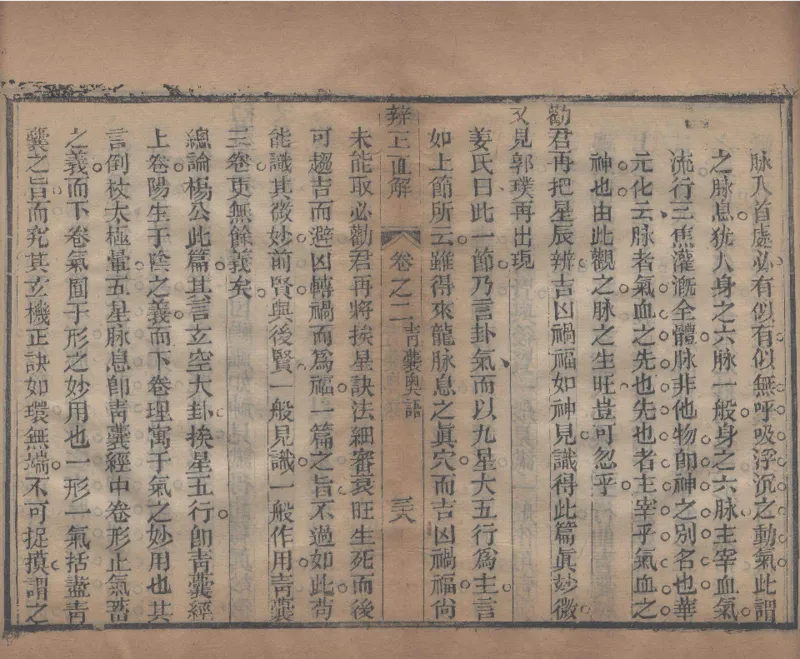 脉入首處必有似有似無呼吸浮沉之動氣此謂
之脉息犹人身之六脉一般身之六脉主宰血氣
流行三焦灌漑全體脉非他物卽神之別名也華
元化云脉者氣血之先也先也者主宰乎氣血之
神也由此觀之脉之生旺豈可忽乎
勸君再把星辰辨吉凶禍福如神見識得此篇眞妙微
又見郭璞再出現
姜氏曰此一節乃言卦氣而以九星大五行爲主言
如上節所云雖得來龍脉息之眞穴而吉凶禍福尙
辨正直解
卷之二
青囊奧語
三八
未能取必勸君再將挨星訣法細審衰旺生死而後
可趨吉而避凶轉禍而爲福一篇之旨不過如此苟
能識其微妙前賢與後賢一般見識一般作用靑囊
三卷更無餘義矣
總論楊公此篇其言玄空大卦挨星五行卽靑囊經
上卷陽生于陰之義而下卷理寓于氣之妙用也其
言倒杖太極暈五星脉息卽靑囊經中卷形止氣蓄
之義而下卷氣囿于形之妙用也一形一氣括盡靑
囊之旨而究其玄機正訣如環無端不可捉摸謂之